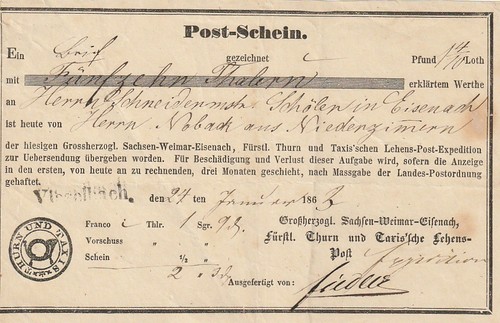 Post-Schein.
Ein Brief gezeichnet Pfund 1 4/10 Loth
mit Fünfzehn Thalern erklärtem Werthe
an Herrn Schneidermstr. Schöler in Eisenach
ist heute von Herrn Noback aus Niederzimmern
der hiesigen Grossherzogl. Sachsen-Weimar-Eisenach, Fürstl. Thurn und Taxis'schen Lehens-Post-Expedition
zur Uebersendung übergeben worden. Für Beschädigung und Verlust dieser Aufgabe wird, sofern die Anzeige
in den ersten, von heute an zu rechnenden, drei Monaten geschieht, nach Massgabe der Landes-Postordnung
gehaftet.
den 24 ten Januar 1862
Franco Thlr. 1 Sgr. 9 d.
Vorschuss " "
Schein 1/2 "
2
Großherzogl. Sachsen-Weimar-Eisenach,
Fürstl. Thurn und Taxis'sche Lehens-
Post Expedition
Ausgefertigt von:
THURN UND TAXIS